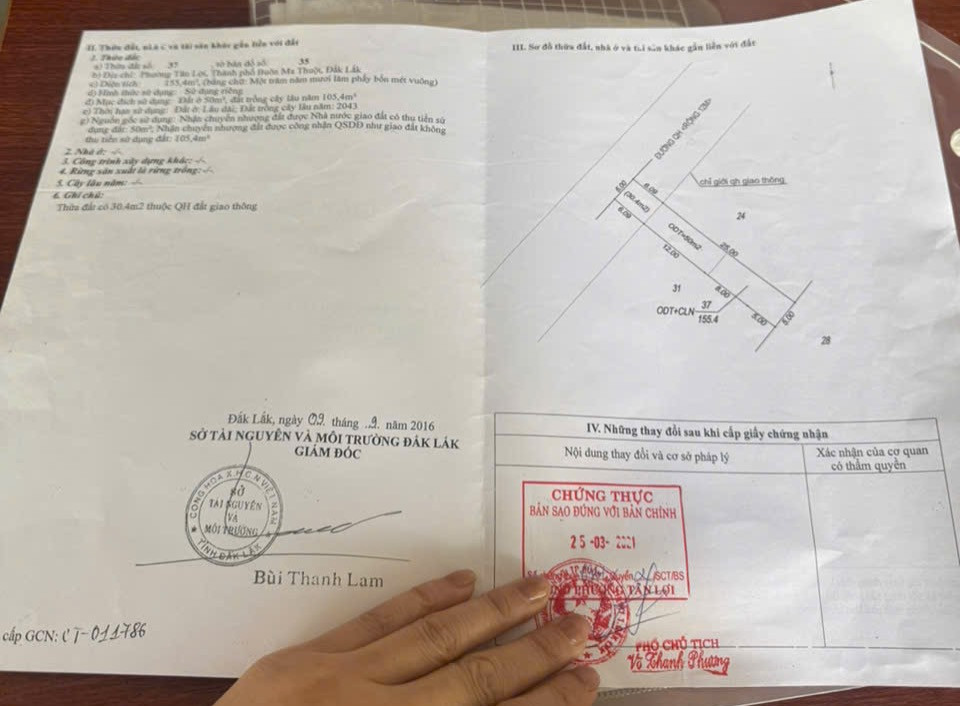 II. Thửa đất, nhà ở và tài sản khác gắn liền với đất
1. Thửa đất:
a) Thửa đất số: 37 , tờ bản đồ số: 35
b) Địa chỉ: Phường Tân Lợi, Thành phố Buôn Ma Thuột, Đắk Lắk
c) Diện tích: 155,4m², (bằng chữ: Một trăm năm mươi lăm phẩy bốn mét vuông)
d) Hình thức sử dụng: Sử dụng riêng
đ) Mục đích sử dụng: Đất ở 50m², đất trồng cây lâu năm 105,4m²
e) Thời hạn sử dụng: Đất ở: Lâu dài; Đất trồng cây lâu năm: 2043
g) Nguồn gốc sử dụng: Nhận chuyển nhượng đất được Nhà nước giao đất có thu tiền sử
dụng đất: 50m²; Nhận chuyển nhượng đất được công nhận QSDĐ như giao đất không
thu tiền sử dụng đất: 105,4m²
2. Nhà ở: -/-
3. Công trình xây dựng khác: -/-
4. Rừng sản xuất là rừng trồng: -/-
5. Cây lâu năm: -/-
6. Ghi chú:
Thửa đất có 30.4m2 thuộc QH đất giao thông
Đắk Lắk, ngày 09 tháng .9. năm 2016
SỞ TÀI NGUYÊN VÀ MÔI TRƯỜNG ĐẮK LẮK
GIÁM ĐỐC
CỘNG HÒA X.H.C.N VIỆT NAM
SỞ
TÀI NGUYÊN
VÀ
MÔI TRƯỜNG
TỈNH ĐẮK LẮK
Bùi Thanh Lam
cấp GCN: CT-011786
III. Sơ đồ thửa đất, nhà ở và tài sản khác gắn liền với đất
ĐƯỜNG QH
chỉ giới qh giao thông
5.00
6.09
(30.4m2)
6.09
24
ODT=50m2
25.00
12.00
31
8.00
ODT+CLN 37
155.4
5.00
5.00
28
IV. Những thay đổi sau khi cấp giấy chứng nhận
Nội dung thay đổi và cơ sở pháp lý
Xác nhận của cơ quan
có thẩm quyền
CHỨNG THỰC
BẢN SAO ĐÚNG VỚI BẢN CHÍNH
25 -03- 2021
SCT/BS
PHƯỜNG TÂN LỢI
PHÓ CHỦ TỊCH
Võ Thanh Phương